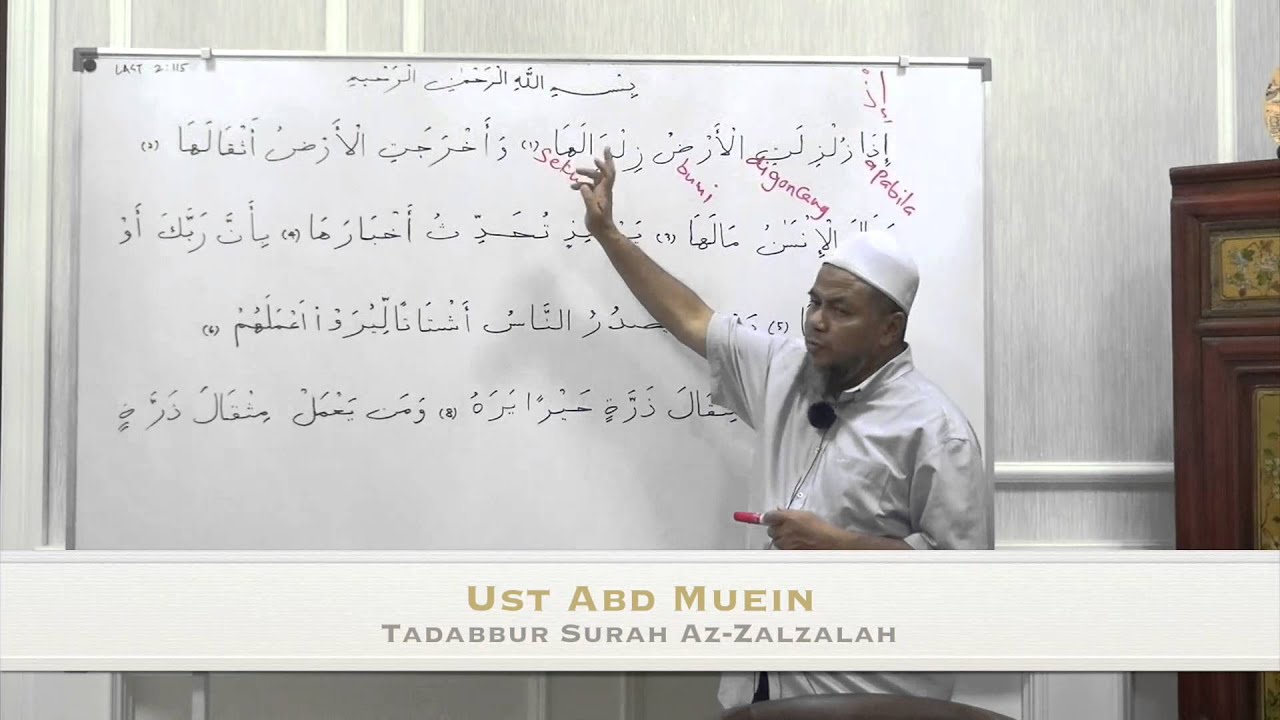 LAST 2:115
بِسْمِ اللَّهِ الْرَّحْمَٰنِ الْرَّحِيمِ
إِذْ
إِذَا زُلْزِلَتِ الْأَرْضُ زِلْزَالَهَا (1) وَأَخْرَجَتِ الْأَرْضُ أَثْقَالَهَا
apabila digoncang bumi
الْإِنْسَٰنُ مَالَهَا يَوْمَئِذٍ تُحَدِّثُ أَخْبَارَهَا بِأَنَّ رَبَّكَ أَوْ
(5) يَصْدُرُ النَّاسُ أَشْتَاتًا لِّيُرَوْا أَعْمَلَهُمْ (6)
مِثْقَالَ ذَرَّةٍ خَيْرًا يَرَهُ (8) وَمَن يَعْمَلْ مِثْقَالَ ذَرَّةٍ
Ust Abd Muein
Tadabbur Surah Az-Zalzalah